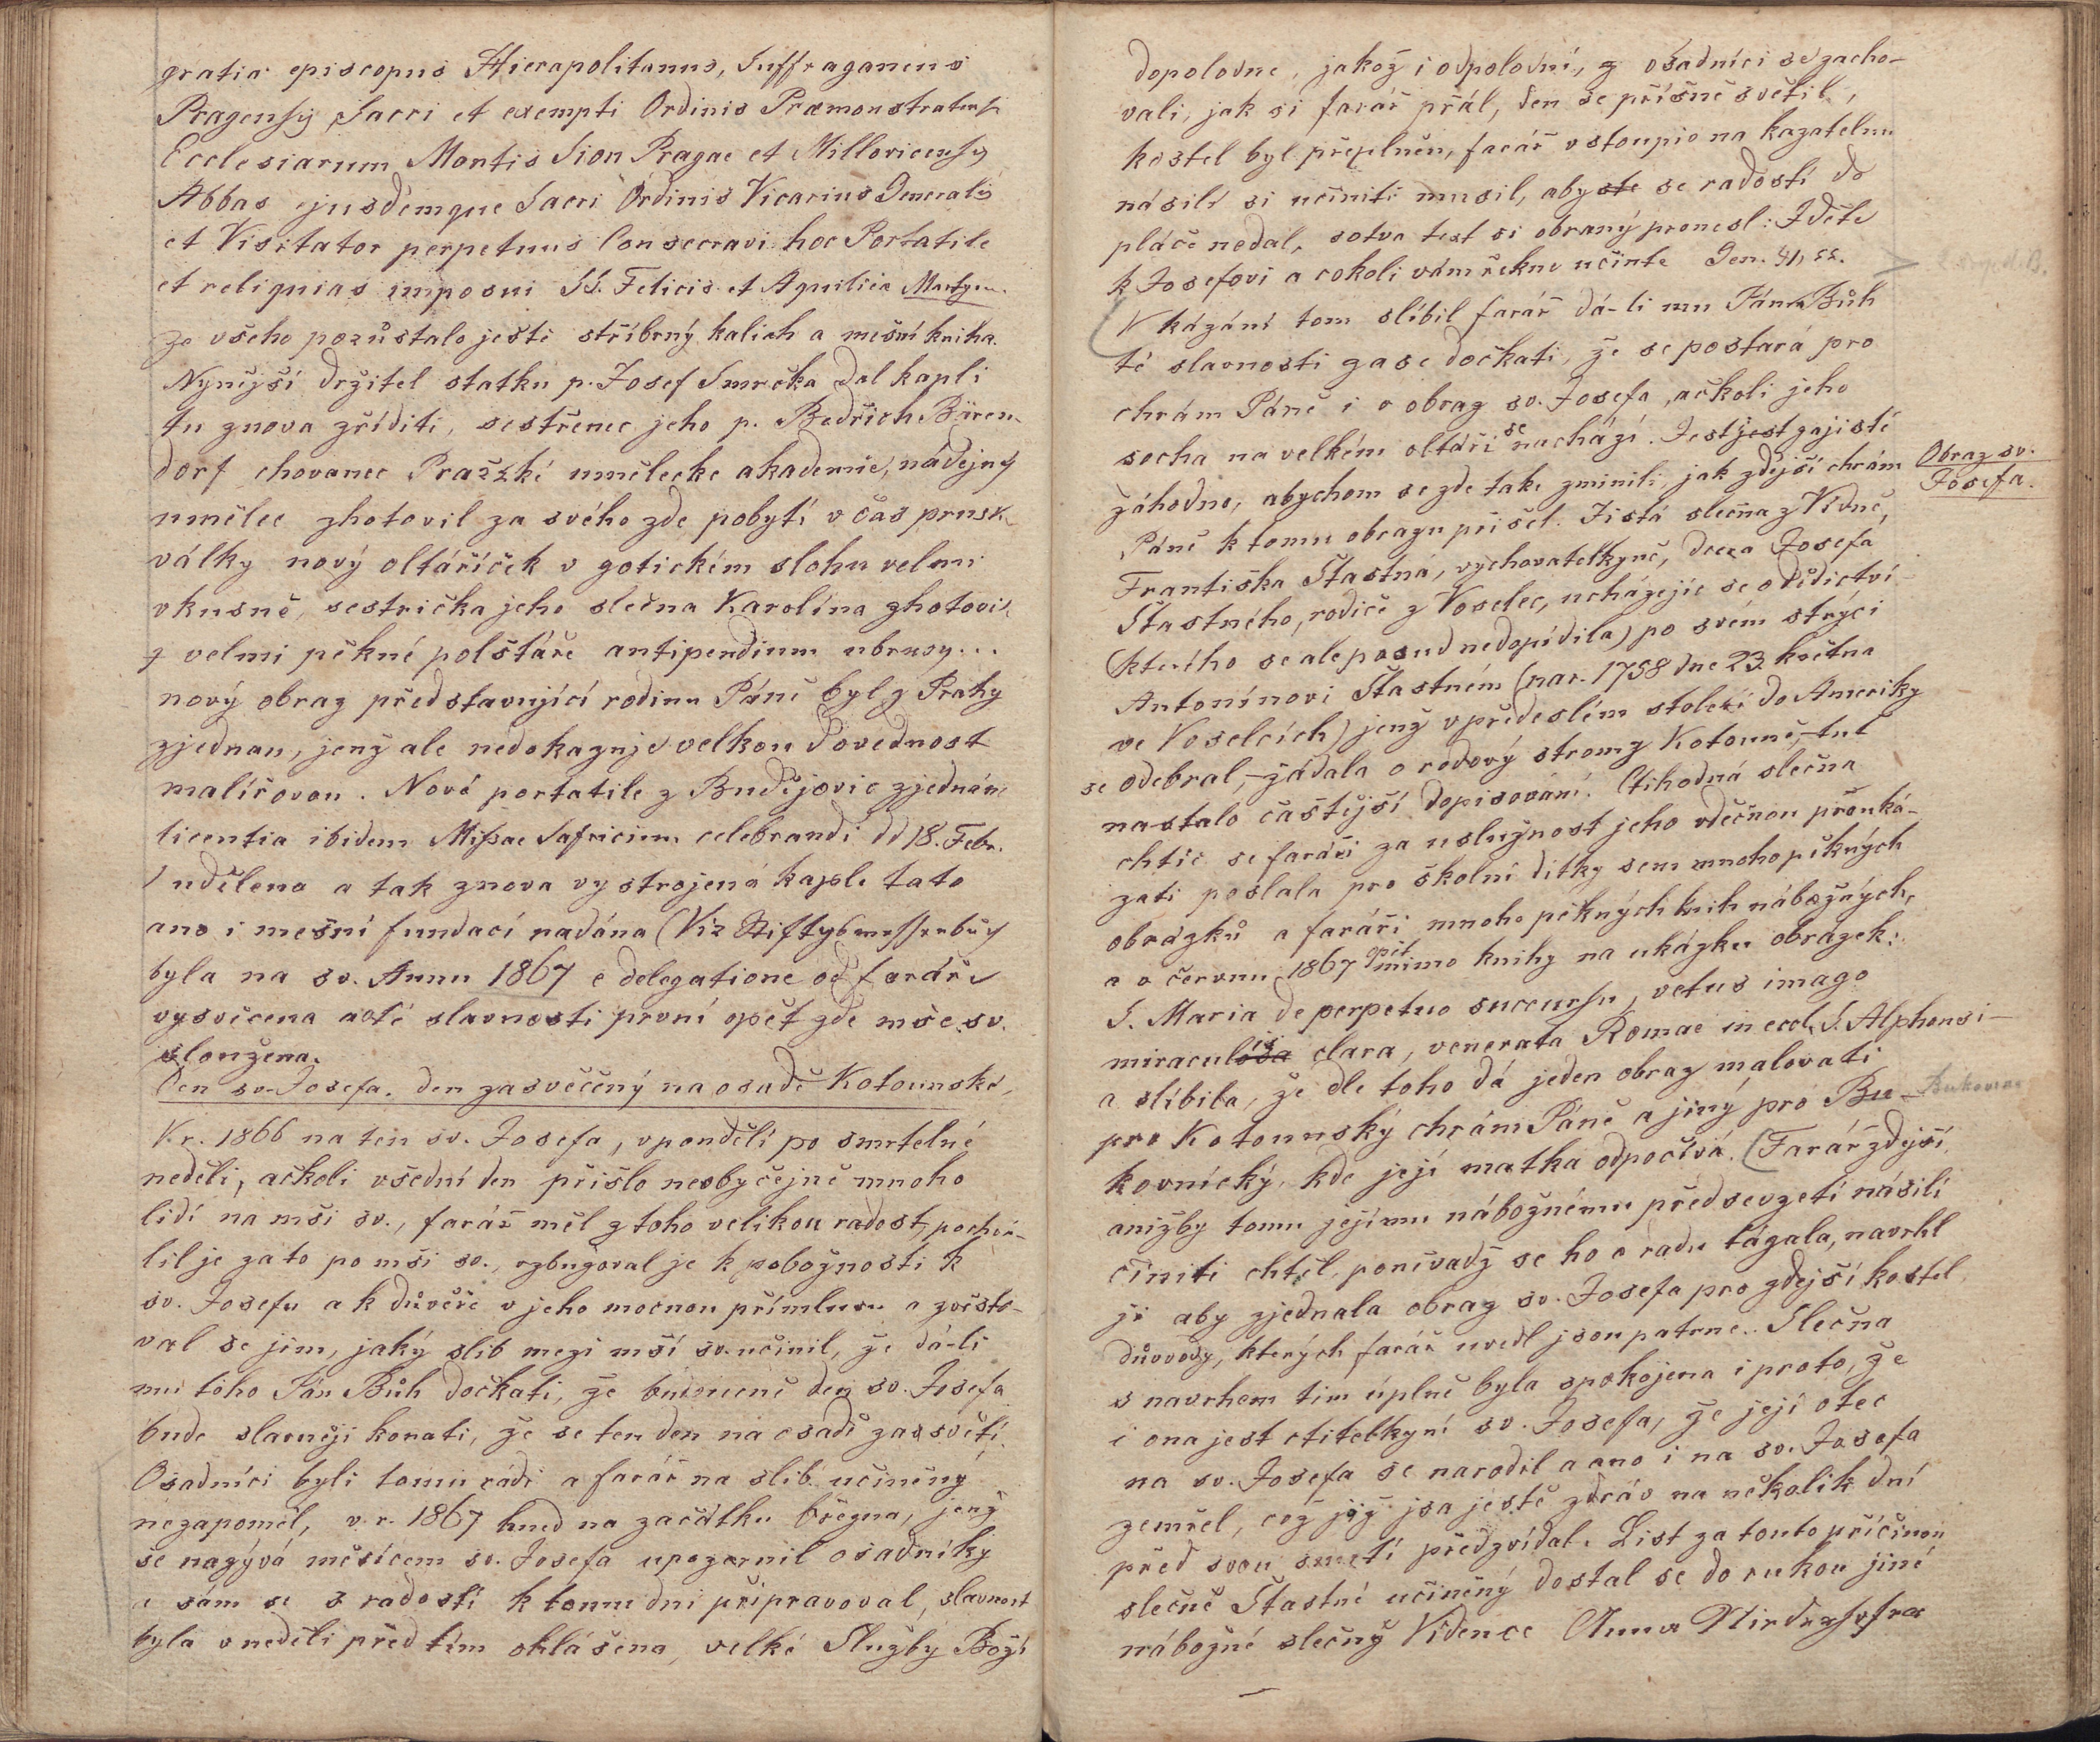 gratia episcopus Hierapolitanus, Suffraganeus
Pragensis, Sacri et exempti Ordinis Præmonstratens.
Ecclesiarum Montis Sion Pragae et Millovicensis
Abbas ejusdemque Sacri Ordinis Vicarius Generalis
et Visitator perpetuus Consecravi hoc Portatile
et reliquias imposui SS. Felicis et Aquilice Martyrum.
Ze všeho pozůstalo ještě stříbrný kalich a mešní kniha.
Nynější držitel statku p. Josef Smrčka dal kapli
tu znova zříditi, sestřenec jeho p. Bedřich Bären-
dorf chovanec Pražské umělecke akademie, nadějný
umělec zhotovil za svého zde pobytí v čas prusk.
války nový oltáříček v gotickém slohu velmi
vkusně, sestřička jeho slečna Karolína zhotovil
z velmi pěkné polštáře antipendium ubrusy...
nový obraz představující rodinu Páně byl z Prahy
zjednan, jenž ale nedokazuje velkou dovednost
malířovou. Nové portatile z Budějovic zjednáno
licentia ibidem Missae Safricium celebrandi dd 18. Febr.
udělena a tak znova vystrojená kaple tato
ano i mešní fundací nadána (Viz
byla na sv. Annu 1867 e delegatione od faráře
vysvěcena a té slavnosti první opět zde mše sv.
sloužena.
Den sv. Josefa. den zasvěčený na osadě Kotounské.
V r. 1866 na ten sv. Josefa, v pondělí po smrtelné
neděli, ačkoli všední den přišlo neobyčejně mnoho
lidí na mši sv., farář měl z toho velikou radost, pochvá-
lil je za to po mši sv., vzbuzoval je k pobožnosti k
sv. Josefu a k důvěře v jeho mocnou přímluvu a zvěsto-
val se jim, jaký slib mezi mší sv. učinil, že dá-li
mu toho Pán Bůh dočkati, že budoucně den sv. Josefa
bude slavněji konati, že se ten den na osadě zasvětí.
Osadníci byli tomu rádi a farář na slib učiněný
nezapoměl, v. r. 1867 hned na začátku března, jenž
se nazývá měsícem sv. Josefa upozornil osadníky
a sám se s radostí k tomu dni připravoval, slavnost
byla v neděli před tím ohlášena, velké Služby Boží
dopoledne, jakož i odpolední, z osadníci se zacho-
vali, jak si farář přál, den se přísně světil,
kostel byl přeplněn, farář vstoupiv na kazatelnu
násilí si učiniti musil, abyste se radostí do
pláče nedal, sotva text si obraný pronesl: Jděte
k Josefovi a cokoli vám řekne učinte Gen. 41, 55.
V kázání tom slíbil farář dá-li mu Pán Bůh
té slavnosti zase dočkati, že se postará pro
chrám Páně i o obraz sv. Josefa, ačkoli jeho
socha na velkém oltáři se nachází. Jest jest zajisté
záhodno, abychom se zde take zminili, jak zdejší chrám
Páně k tomu obrazu přišel. Jistá slečna z Vídně,
Obraz sv.
Josefa.
Františka Šťastná, vychovatelkyně, dcera Josefa
Šťastného, rodiče z Voselec, ucházejíc se o dědictví
(kterého se ale posud nedopídila) po svém strýci
Antonínovi Šťastném (nar. 1758 dne 23. května
ve Voselcích) jenž v předeslém století do Ameriky
se odebral, – žádala o rodový strom z Kotouně, – tuť
nastalo častější dopisování. Ctihodná slečna
chtíc se faráři za uslužnost jeho vděčnou prouká-
zati poslala pro školní dítky sem mnoho pěkných
obrázků a faráři mnoho pěkných knih nábožných,
a v červnu 1867 opět mimo knihy na ukázku obrázek:
S. Maria de perpetuo succursu, vetus imago
miraculósa is clara, venerata Romae in eccl. S. Alphonsi –
a slíbila, že dle toho dá jeden obraz malovati
pro Kotounský chrám Páně a jiný pro Bu- Bukovn
kovnícký, kde její matka odpočívá. (Farář zdejší
anižby tomu jejímu nábožnému předsevzetí násilí
činiti chtěl, poněvadž se ho o radu tázala, navrhl
jí aby zjednala obraz sv. Josefa pro zdejší kostel
důvody, kterých farář uvedl jsou patrne. Slečna
s navrhem tím úplně byla spokojena i proto, že
i ona jest ctitelkyní sv. Josefa, že její otec
na sv. Josefa se narodil a ano i na sv. Josefa
zemřel, což již jsa ještě zdráv na několik dní
před svou smrtí předzvídal. List za touto příčinou
slečně Šťastné učiněný dostal se do rukou jiné
nábožné slečny Vídence Anna